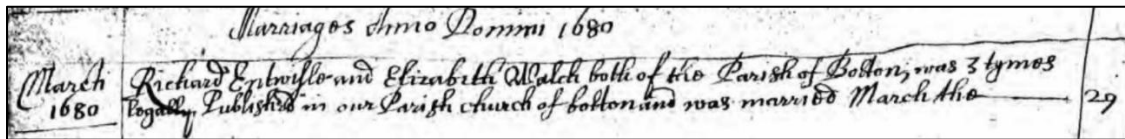 Marriages Anno Domini 1680
March Richard Entwisle and Elizabeth Walch both of the Parish of Bolton, was 3 tymes
1680 Legally Published in our Parish church of bolton and was married March the 29